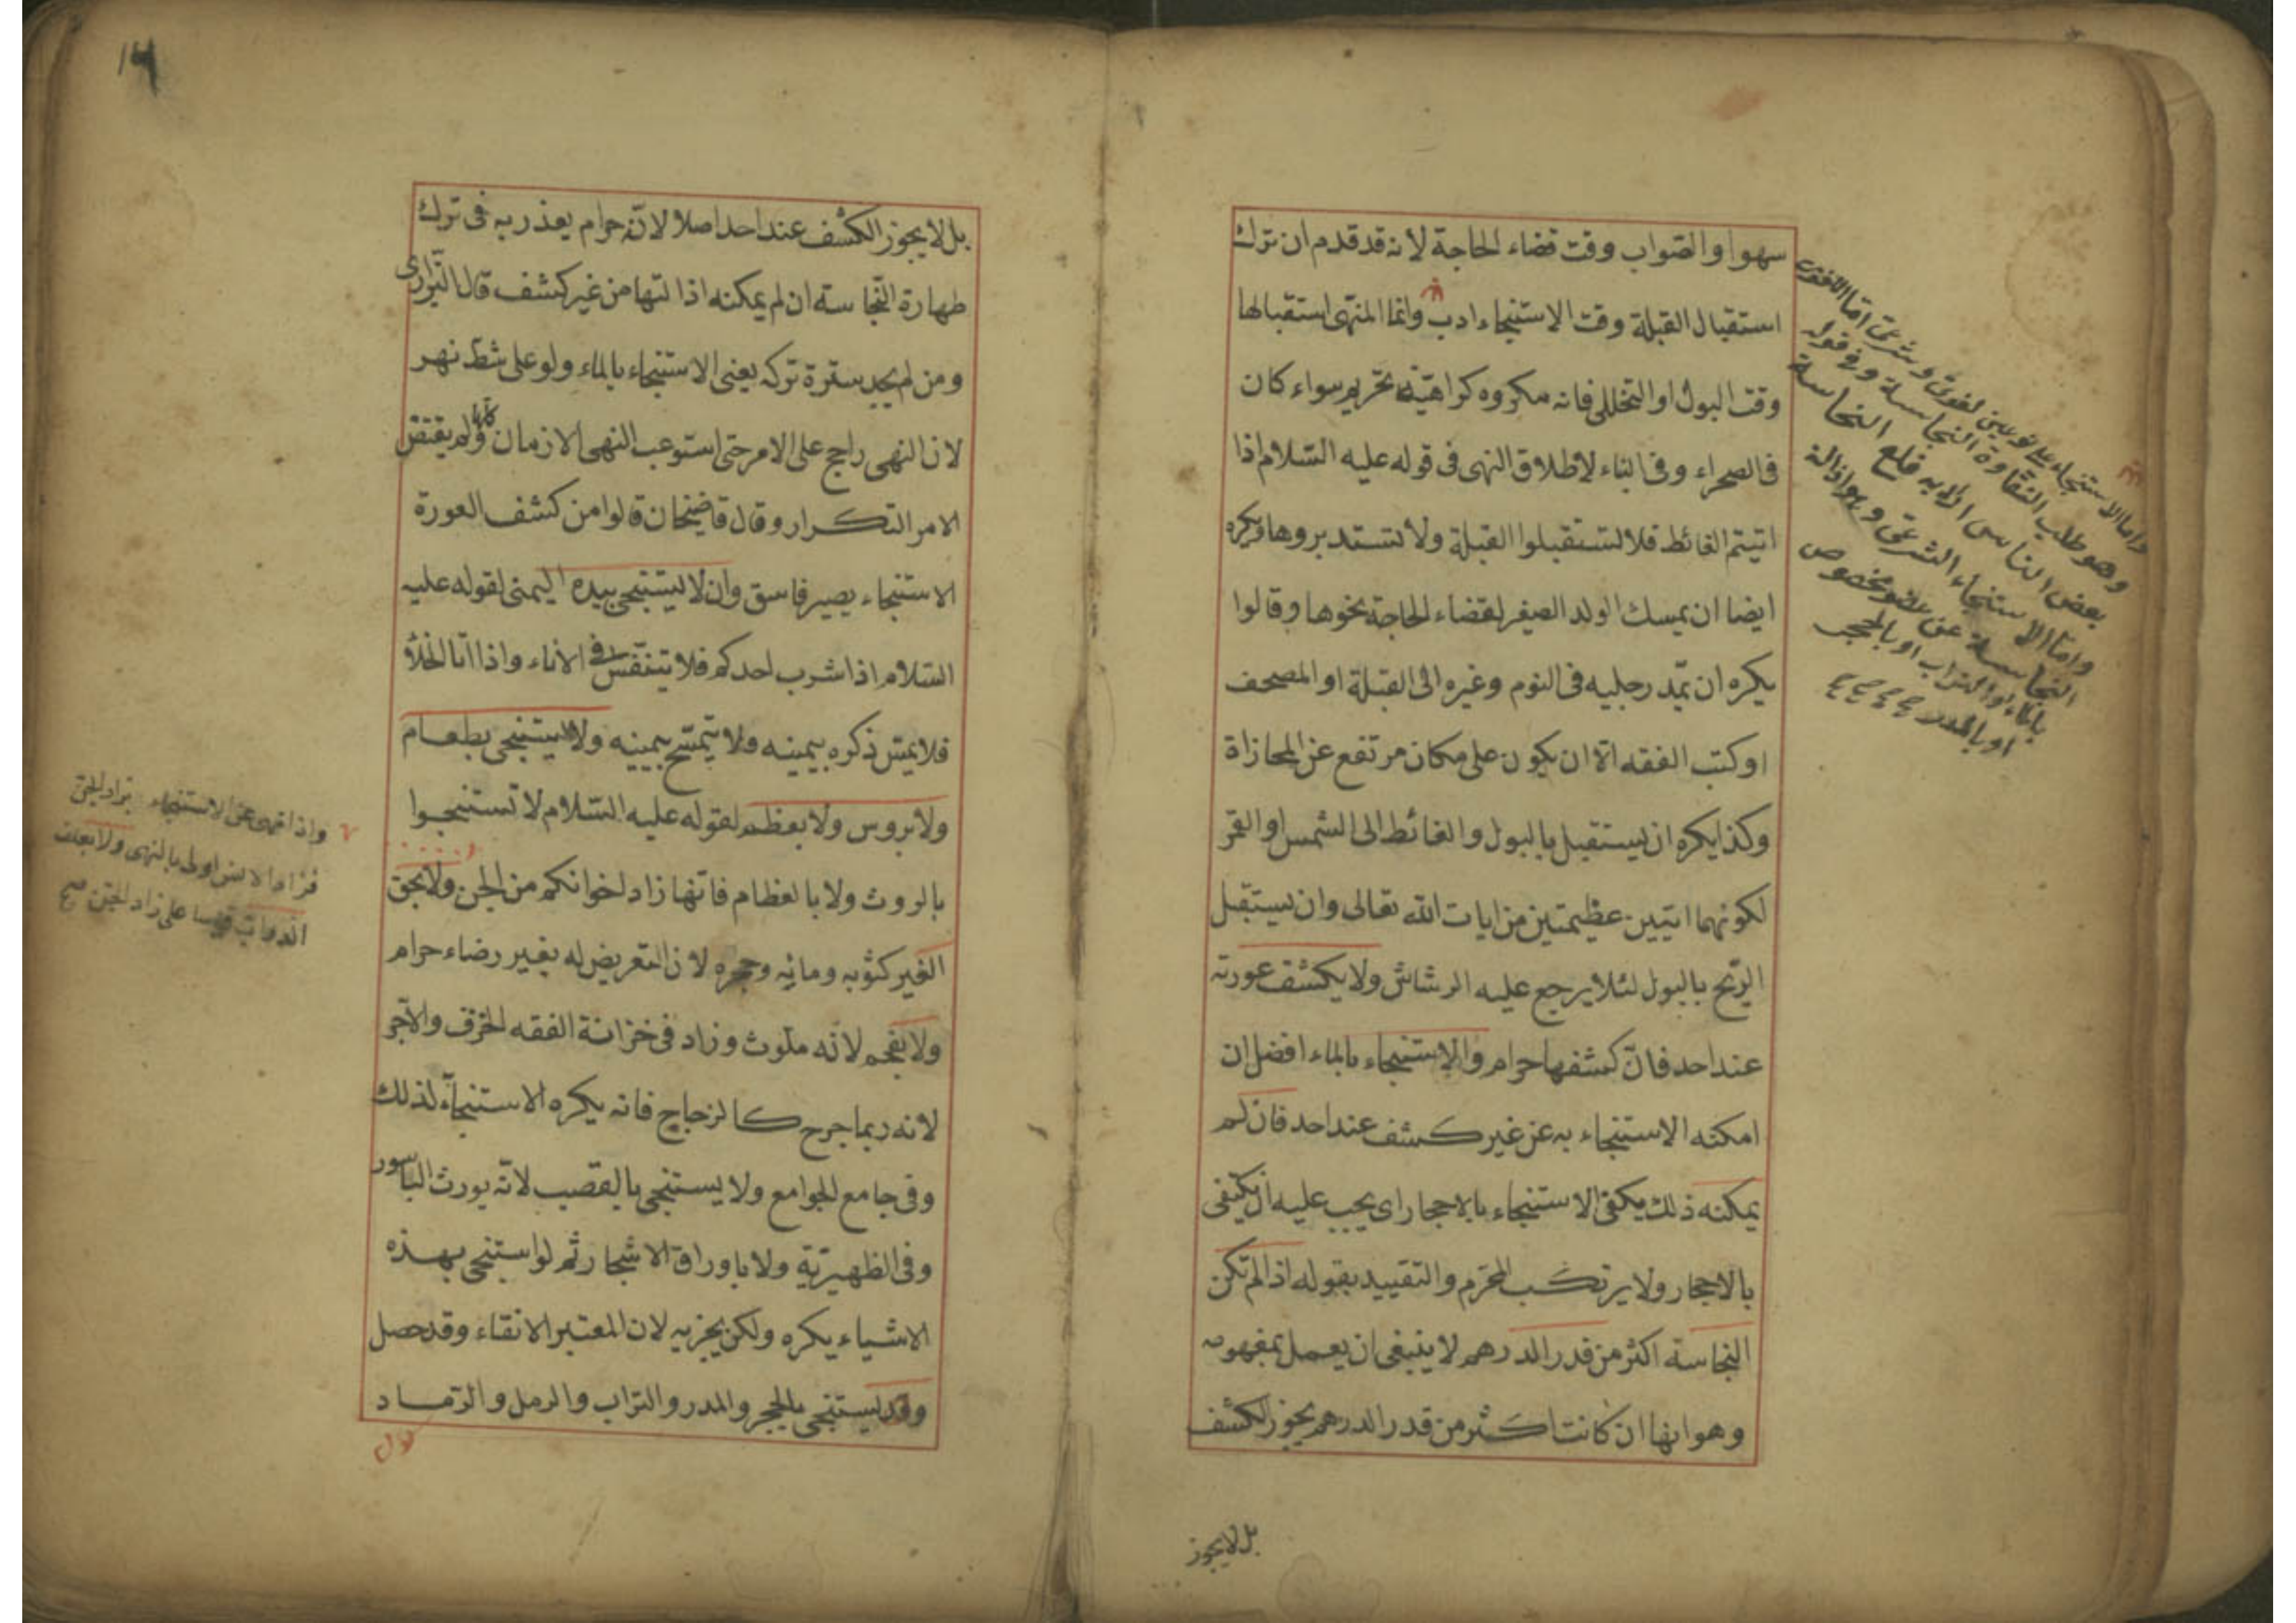 سهوا والصواب وقت قضاء الحاجة لأنه قد قدم ان ترك
استقبال القبلة وقت الاستنجاء ادب وانما المنهى استقبالها
وقت البول او التخلى فانه مكروه كراهية تحريم سواء كان
فى الصحراء وفى البناء لاطلاق النهى فى قوله عليه السلام اذا
اتيتم الغائط فلا تستقبلوا القبلة ولا تستدبروها ويكره
ايضا ان يمسك الولد الصغير لقضاء الحاجة نحوها وقالوا
يكره ان يمد رجليه فى النوم وغيره الى القبلة او المصحف
او كتب الفقه الا ان يكون على مكان مرتفع عن المحازاة
وكذا يكره ان يستقبل بالبول والغائط الى الشمس او القمر
لكونهما ايتين عظيمتين من ايات الله تعالى وان يستقبل
الريح بالبول لئلا يرجع عليه الرشاش ولا يكشف عورته
عند احد فان كشفها حرام والاستنجاء بالماء افضل ان
امكنه الاستنجاء به عن غير كشف عند احد فان لم
يمكنه ذلك يكفى الاستنجاء بالاحجار اى يجب عليه ان يكتفى
بالاحجار ولا يرتكب المحرم والتقييد بقوله اذا لم تكن
النجاسة اكثر من قدر الدرهم لا ينبغى ان يعمل بمفهومه
وهو انها ان كانت اكثر من قدر الدرهم يجوز الكشف
بل لا يجوز
واما الاستنجاء على نوعين لغوى وشرعى اما اللغوى
وهو طلب النقاوة النجاسة وفى قول
بعض الناس اراد به قلع النجاسة
واما الاستنجاء الشرعى وهو اذالة
النجاسة عن عضو مخصوص
بالماء او التراب او بالحجر
او بالمدر
١٤
بل لا يجوز الكشف عند احد اصلا لانه حرام يعذر به فى ترك
طهارة النجاسة ان لم يمكنه اذالتها من غير كشف قال البزازى
ومن لم يجد سترة تركه يعنى الاستنجاء بالماء ولو على شط نهر
لان النهى راجح على الامر حتى استوعب النهى الازمان كلها ولم يقتض
الامر التكرار وقال قاضيخان قالوا من كشف العورة
الاستنجاء يصير فاسق وان لا يستنجى بيده اليمنى لقوله عليه
السلام اذا شرب احدكم فلا يتنفس فى الاناء واذا اتا الخلأ
فلا يمس ذكره بيمينه ولا يتمسح بيمينه ولا يستنجى بطعام
ولا بروس ولا بعظم لقوله عليه السلام لا تستنجوا
بالروث ولا بالعظام فانها زاد اخوانكم من الجن ولا بحق
الغير كثوبه ومائه وحجره لان التعريض له بغير رضاء حرام
ولا بفحم لانه ملوث وزاد فى خزانة الفقه الخزف والآجر
لانه ربما جرح كالزجاج فانه يكره الاستنجاء لذلك
وفى جامع الجوامع ولا يستنجى بالقصب لانه يورث الباسور
وفى الظهيرية ولا باوراق الاشجار ثم لو استنجى بهذه
الاشياء يكره ولكن يجزيه لان المعتبر الانقاء وقد حصل
وقد يستنجى بالحجر والمدر والتراب والرمل والرماد
واذا نهى عن الاستنجاء بزاد الجن
فزاد الانس اولى بالنهى ولا بعلف
الدواب قيسا على زاد الجن صح